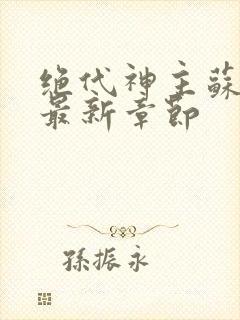 绝代神主蘇
最新章節
孫振永